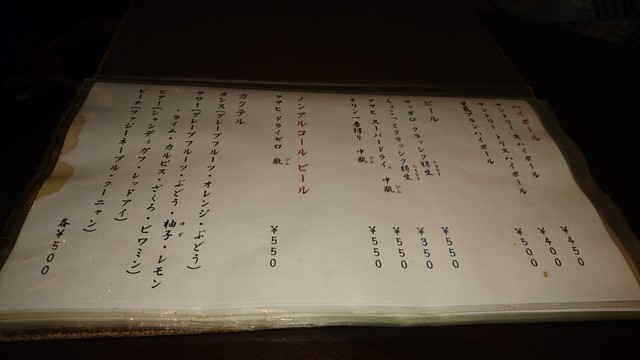 ハイボール
サントリー 角ハイボール ￥450
サントリー トリスハイボール ￥400
電氣ブランハイボール ￥500
ビール
サッポロ クラシック樽生 ￥550
しょこっとクラシック樽生 ￥350
アサヒ スーパードライ 中瓶 ￥550
キリン一番搾り 中瓶 ￥550
ノンアルコール ビール
アサヒ ドライゼロ 瓶 ￥550
カクテル
カシス(グレープフルーツ・オレンジ・ぶどう)
サワー(グレープフルーツ・ぶどう・柚子・レモン
・ライム・カルピス・ざくろ・ビワミン)
ビアー(シャンディガフ・レッドアイ)
ピーチ(ファジーネーブル・クーニャン)
各￥500